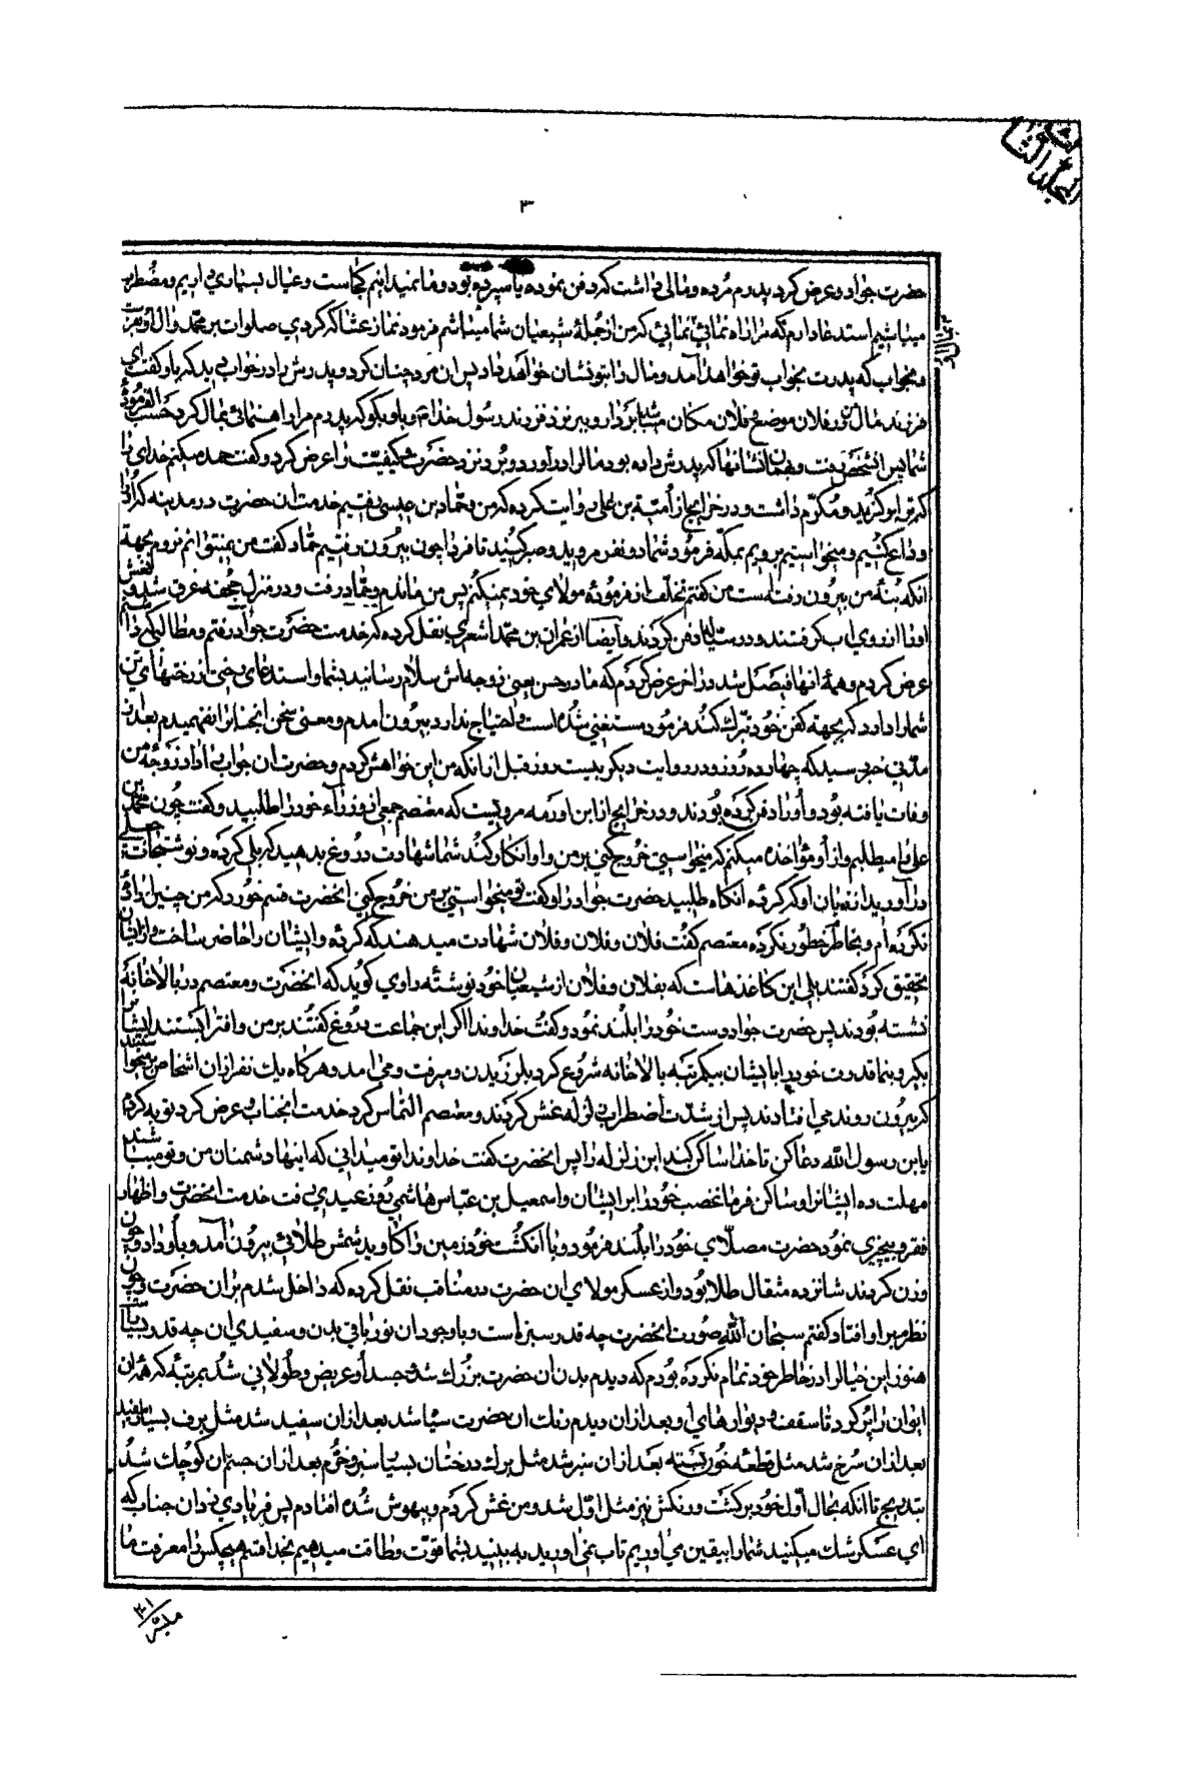 المجلد الثالث
۳
حضرت جواد و عرض کرد پدرم مرده و مالی داشت که دفن نموده یا سپرده بود و ما نمیدانیم کجاست و عیال بسیاری داریم و مضطر
میباشیم استدعا دارم که مرا راه نمائی نمائی که من از جملهٔ شیعیان شما میباشم فرمود نماز عشا که کردی صلوات بر محمد و ال او بفرست
و بخواب که پدرت بخواب تو خواهد آمد و مال را بتو نشان خواهد داد پس ان مرد چنان کرد و پدرش را در خواب دید که باو گفت ای
فرزند مال در فلان موضع و فلان مکان میباشد بردار و ببر نزد فرزند رسول خدا و باو بگو که پدرم مرا راهنمائی بمال کرد حسب الفرمودهٔ
شما پس انشخص رفت و بهمان نشانها که پدرش داده بود مالرا دراورد و برد نزد حضرت و کیفیت را عرض کرد و گفت حمد میکنم خدای را
که ترا برگزید و مکرم داشت و در خرایج از امیة بن علی روایت کرده که من و حماد بن عیسی رفتیم خدمت ان حضرت در مدینه که او را
وداع کنیم و میخواستیم برویم بمکه فرمود شما دو نفر مروید و صبر کنید تا فردا چون بیرون رفتیم حماد گفت من نمیتوانم نروم بجهة
انکه بنهٔ من بیرون رفته است من گفتم تخلف از فرمودهٔ مولای خود نمیکنم پس من ماندم و حماد رفت و در منزل جحفه غرق شد و نعش
او را از روی اب گرفتند و در سیاله دفن کردند و ایضا از عمران بن محمد اشعری نقل کرده که خدمت حضرت جواد رفتم و مطالبیکه داشتم
عرض کردم و همهٔ انها فیصل شد در اخر عرض کردم که مادر حسن یعنی زوجه اش سلام رسانید بشما و استدعای رختی از رختهای تن
شما را دارد که بجهة کفن خود تبرک کند فرمود مستغنی شده است و احتیاج ندارد بیرون امدم و معنی سخن انجناب را نفهمیدم بعد از
مدتی خبر رسید که چهارده روز و در روایت دیگر بیست روز قبل از انکه من این خواهش کردم و حضرت ان جواب را داد زوجه من
وفات یافته بود و او را دفن کرده بودند و در خرایج از ابن اورمه مرویست که معتصم جمعی از وزراء خود را طلبید و گفت چون محمد بن
علی را میطلبم و از او مؤاخذه میکنم که میخواستی خروج کنی بر من و او انکار کند شما شهادت دروغ بدهید که بلی کرده و نوشتجات جعلی
دراورید از زبان او که کرده انگاه طلبید حضرت جواد را و گفت تو میخواستی بر من خروج کنی انحضرت قسم خورد که من چنین ارادهٔ
نکرده ام و بخاطر خطور نکرده معتصم گفت فلان و فلان و فلان شهادت میدهند که کرده و ایشان را حاضر ساخت و از ایشان
تحقیق کرد گفتند بلی این کاغذهاست که بفلان و فلان از شیعیان خود نوشته راوی گوید که انحضرت و معتصم در بالاخانهٔ
نشسته بودند پس حضرت جواد دست خود را بلند نمود و گفت خداوندا اگر این جماعت دروغ گفتند بر من و افترا بستند ایشان را
بگیر و بنما قدرت خود را بایشان بیکمرتبه بالاخانه شروع کرد بلرزیدن و میرفت و می امد و هرگاه یک نفر از ان اشخاص میخواستند
که بیرون روند می افتادند پس از شدت اضطراب زلزله غش کردند و معتصم التماس کرد خدمت انجناب و عرض کرد توبه کردم
یابن رسول الله دعا کن تا خدا ساکن کند این زلزله را پس انحضرت گفت خداوندا تو میدانی که اینها دشمنان من و تو میباشند
مهلت ده ایشانرا و ساکن فرما غضب خود را بر ایشان و اسمعیل بن عباس هاشمی روز عیدی رفت خدمت انحضرت و اظهار
فقر و بیچیزی نمود حضرت مصلای خود را بلند فرمود و با انگشت خود زمین را کاوید شمش طلائی بیرون آمد و باو داد و چون
وزن کردند شانزده مثقال طلا بود و از عسکر مولای ان حضرت در مناقب نقل کرده که داخل شدم بر ان حضرت و چون
نظرم بر او افتاد گفتم سبحان الله صورت انحضرت چه قدر سبزه است و با وجود ان نورانی بدن و سفیدی ان چه قدر بسیار
هنوز این خیال را در خاطر خود تمام نکرده بودم که دیدم بدن ان حضرت بزرگ شد و جسد او عریض و طولانی شد بمرتبهٔ که همهٔ ان
ایوان را پر کرد تا سقف و دیوارهای او بعد از ان دیدم رنگ ان حضرت سیاه شد بعد از ان سفید شد مثل برف بسیار سفید
بعد از ان سرخ شد مثل قطعه خون بسته بعد از ان سبز شد مثل برگ درختان بسیار سبز و خرم بعد از ان جسم ان کوچک شد
بتدریج تا انکه بحال اول خود برگشت و رنگش نیز مثل اول شد و من غش کردم و بیهوش شده افتادم پس فریادی زد ان جناب که
ای عسکر شک میکنید شما را بیقین می اوریم تاب نمی اورید به بینید بشما قوت و طاقت میدهیم بخدا قسم هیچکس را معرفت ما